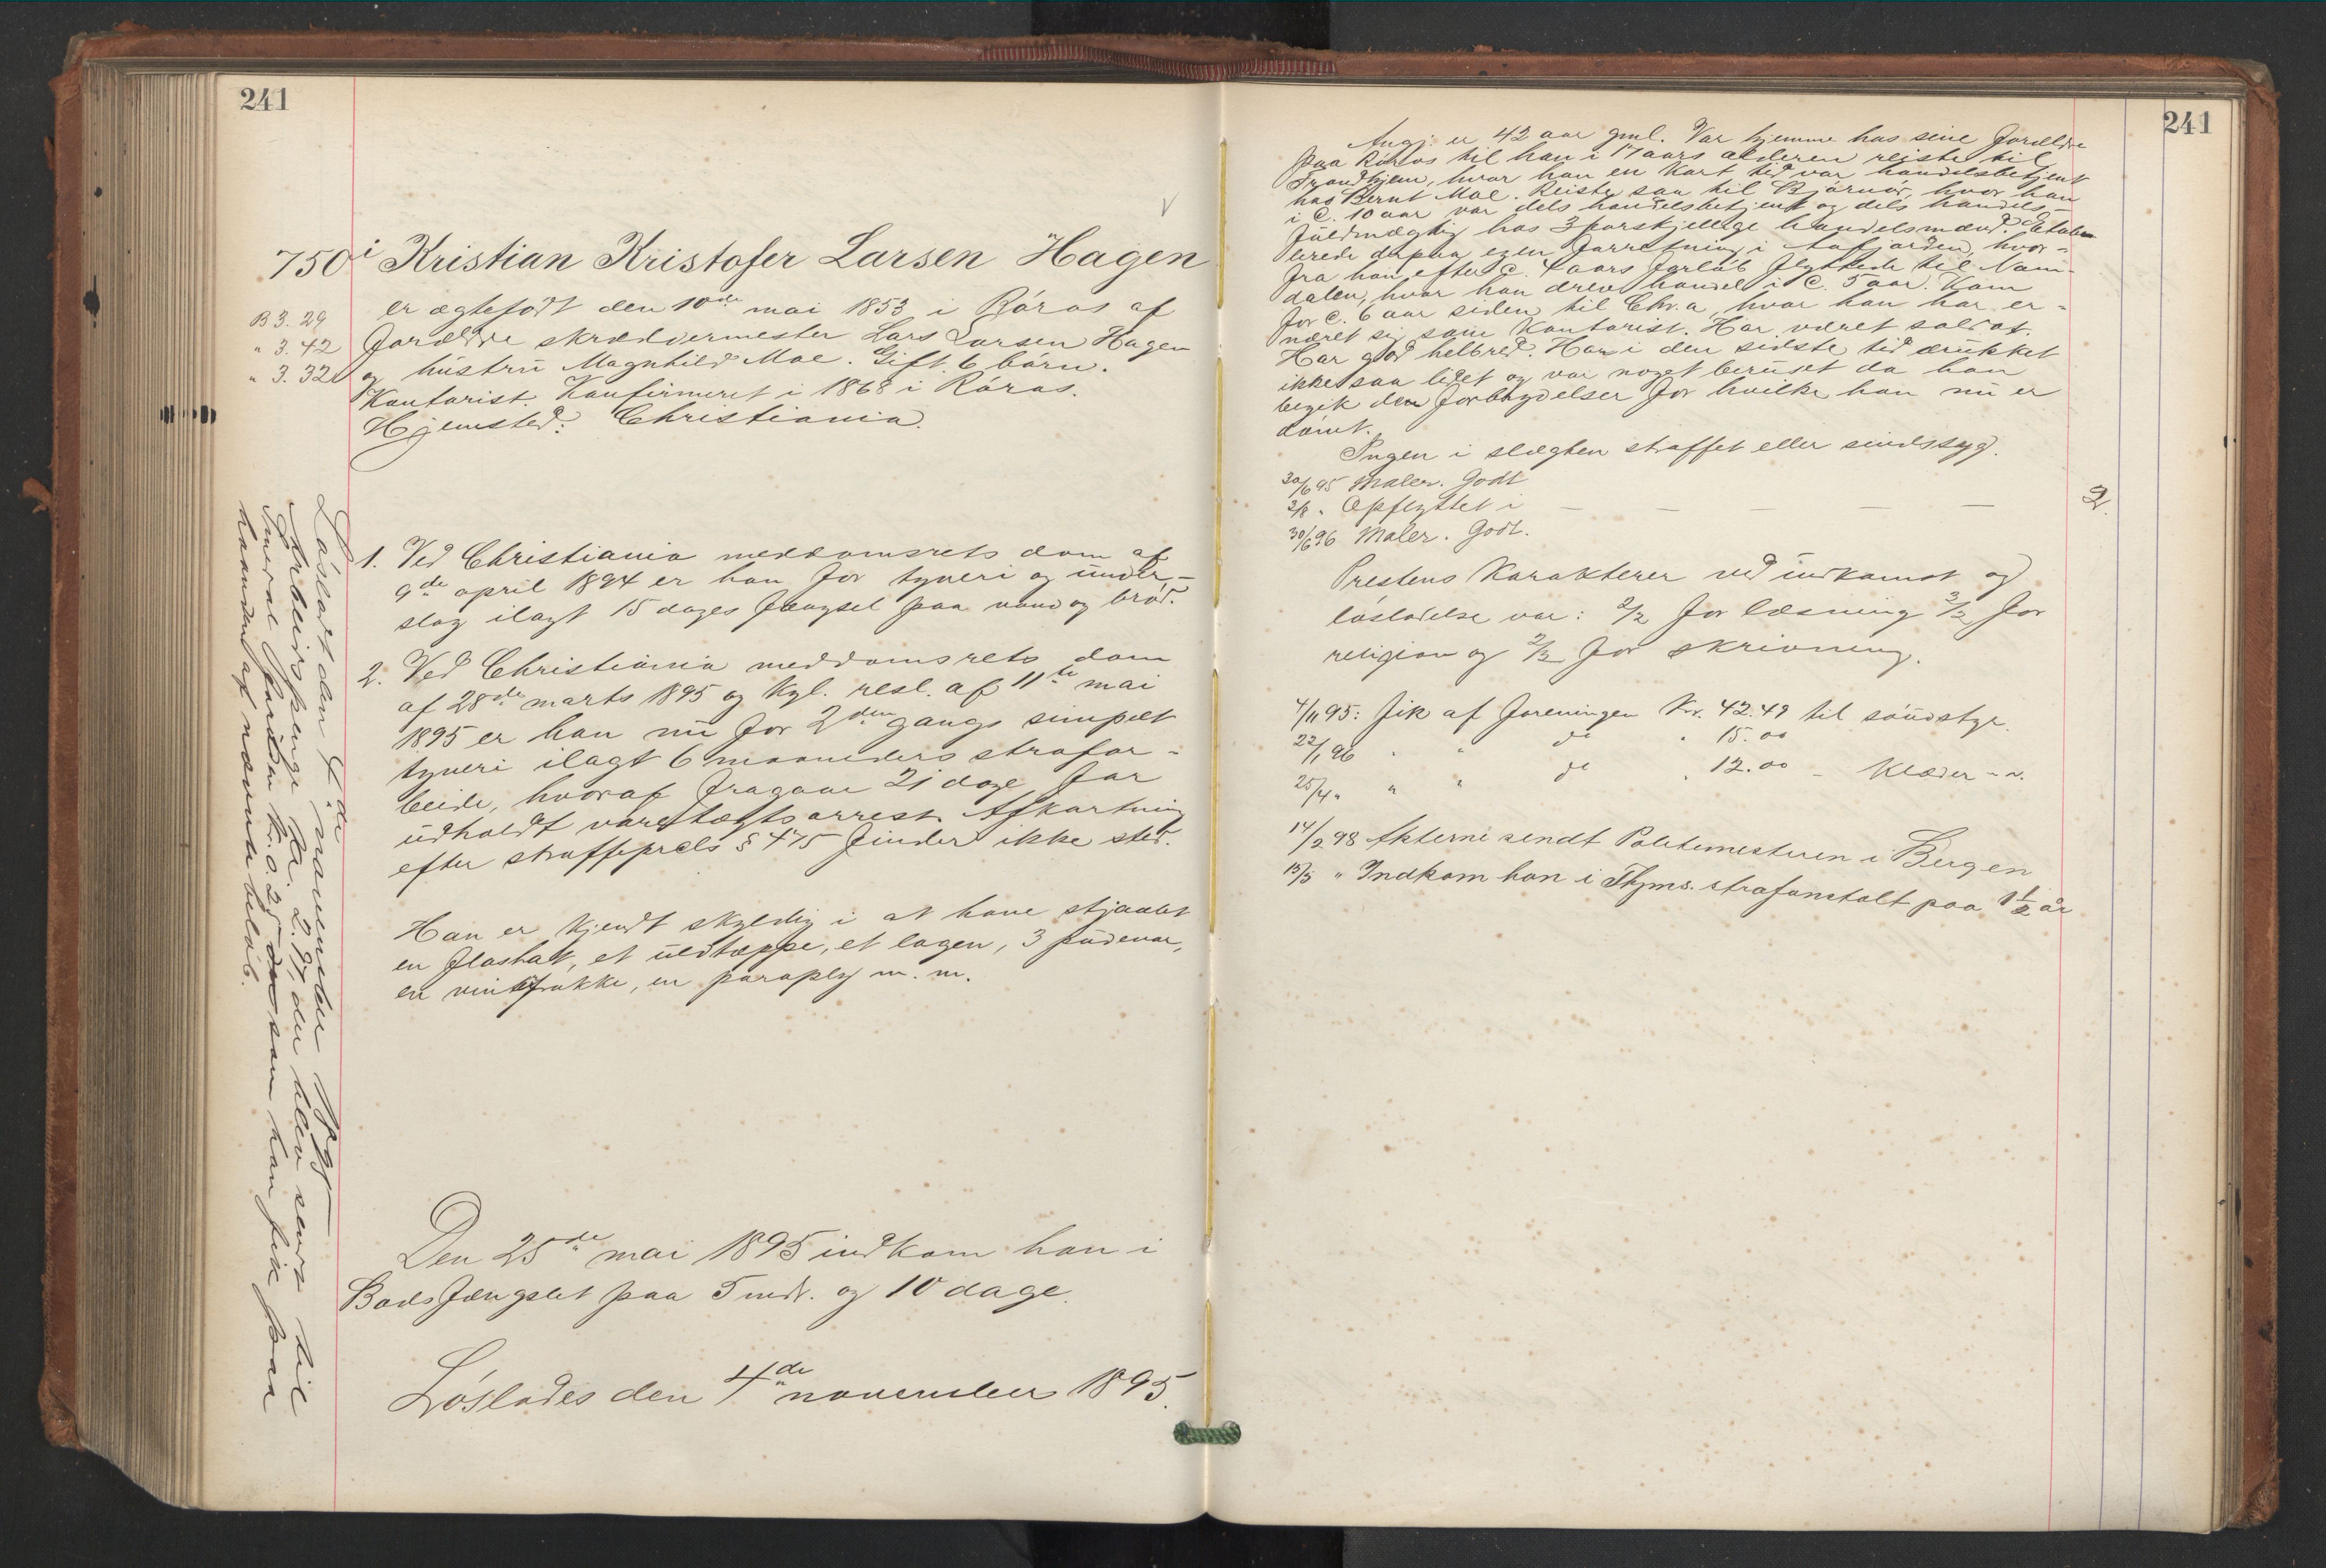 241
750i Kristian Kristofer Larsen Hagen
er ægtefødt den 10de mai 1853 i Røros af
B 3. 29
forældre skræddermester Lars Larsen Hagen
" 3. 42
og hustru Magnhild Moe. Gift. 6 børn.
" 3. 32
Kontorist. Konfirmeret i 1868 i Røros.
Hjemsted: Christiania.
1. Ved Christiania meddomsrets dom af
9de april 1894 er han for tyveri og under-
slag ilagt 15 dages fængsel paa vand og brød.
2. Ved Christiania meddomsrets dom
af 28de marts 1895 og kgl. resl. af 11te mai
1895 er han nu for 2den gangs simpelt
tyveri ilagt 6 maaneders strafar-
beide, hvoraf fragaar 21 dage for
udholdt varetægtsarrest. Afkortning
efter straffeprcls § 475 finder ikke sted.
Han er kjendt skyldig i at have stjaalet
en floshat, et uldtæppe, et lagen, 3 pudevar,
en vinterfrakke, en paraply m. m.
Den 25de mai 1895 indkom han i
Bodsfængslet paa 5 mdr. og 10 dage.
Løslades den 4de november 1895.
Løsladt den 4de november 1895
Arbeidspenge kr. 2.97, der blev sendt til
kr. 0.25 som han fik paa
haanden af nævnte beløb.
241
Angj. er 42 aar gml. Var hjemme hos sine forældre
paa Røros til han i 17 aars alderen reiste til
Trondhjem, hvor han en kort tid var handelsbetjent
hos Bernt Moe. Reiste saa til Bjørnør, hvor han
i C. 10 aar var dels handelsbetjent og dels handels-
fuldmægtig hos 3 forskjellige handelsmænd. Etable-
rerede derpaa egen forretning i Aafjorden, hvor-
fra han efter C. 4 aars forløb flyttede til Nam-
dalen, hvor han drev handel i C. 5 aar. Kom
for C. 6 aar siden til Chr.a, hvor han har er-
næret sig som kontorist. Har været soldat.
Har god helbred. Har i den sidste tid drukket
ikke saa lidet og var noget beruset da han
begik den forbrydelser for hvilke han nu er
dømt.
Ingen i slægten straffet eller sindssyg.
30/6 95 Maler. Godt
2/8 " Opflyttet i — — — — — 2.
30/6 96 Maler. Godt.
Prestens karakterer ved indkomst og
løsladelse var: 2/2 for læsning 3/2 for
religion og 2/2 for skrivning.
4/11 95: fik af foreningen Kr. 42.49 til
22/1 96 " " do " 15.00
25/4 " " " do " 12.00 – Klæder – ".
14/2 98 Akterne sendt Politimesteren i Bergen
15/3 " Indkom han i Thjms. strafanstalt paa 1 1/2 år